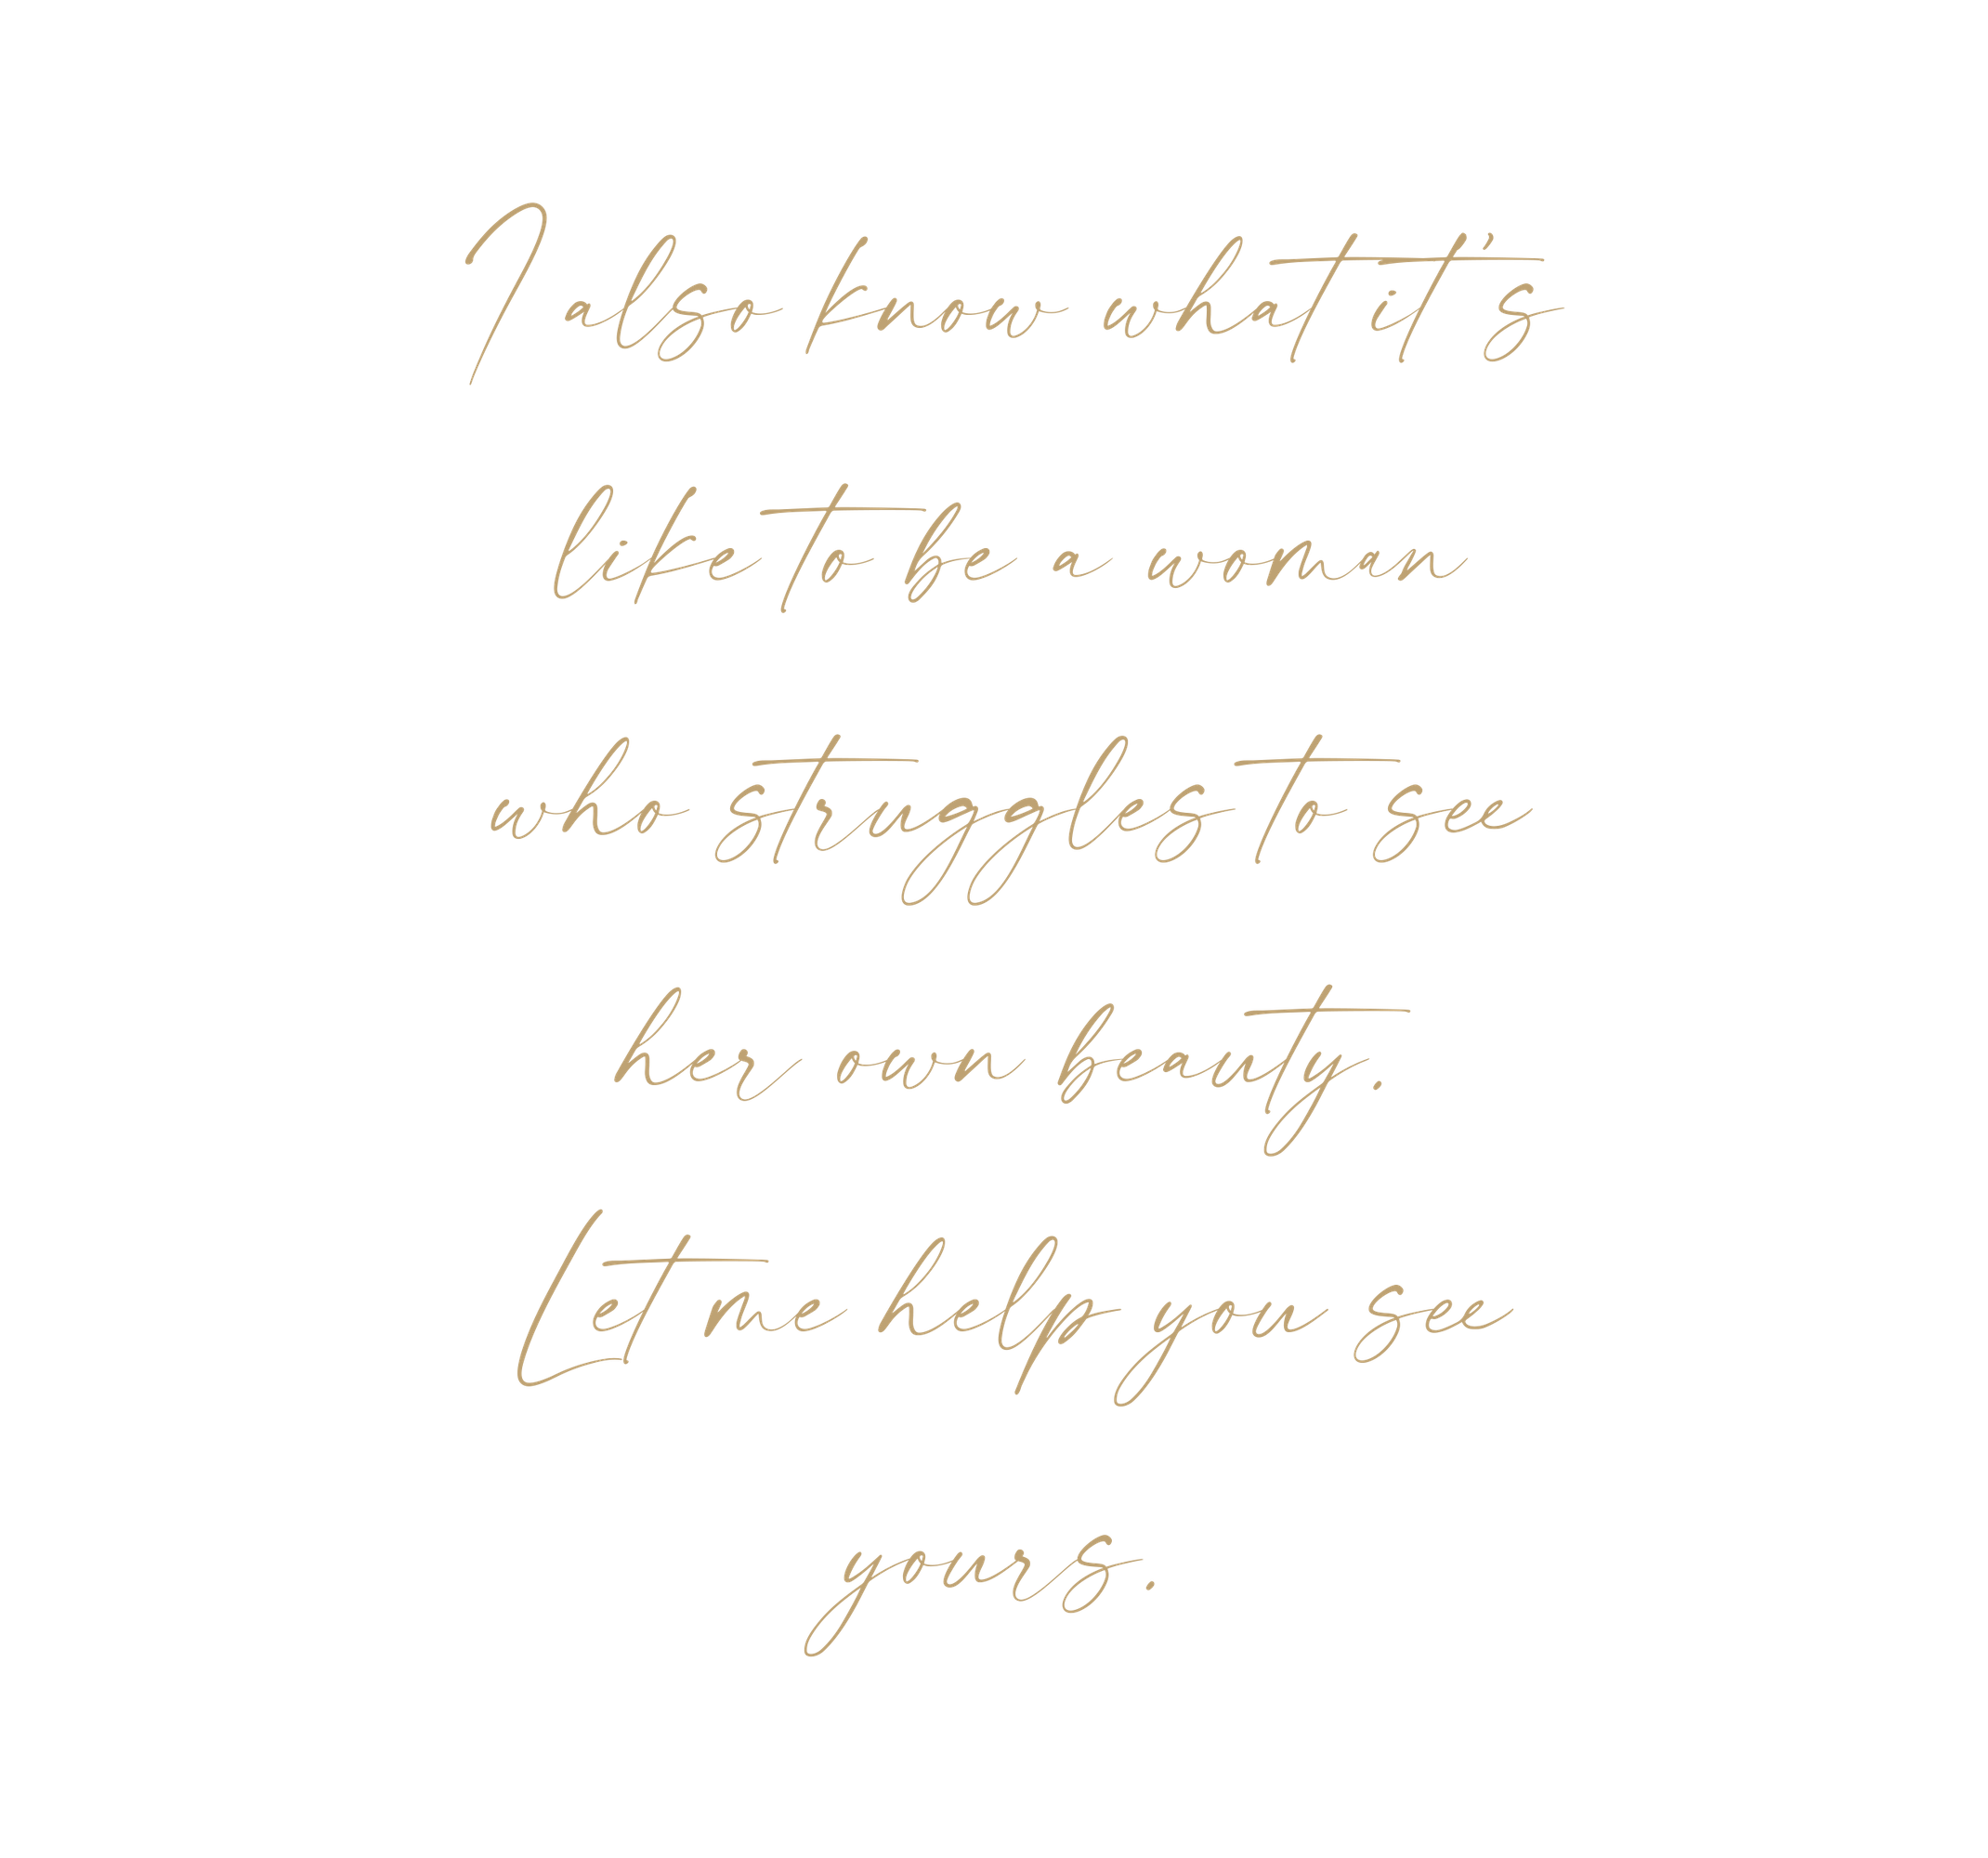 I also know what it's
like to be a woman
who struggles to see
her own beauty.
Let me help you see
yours.